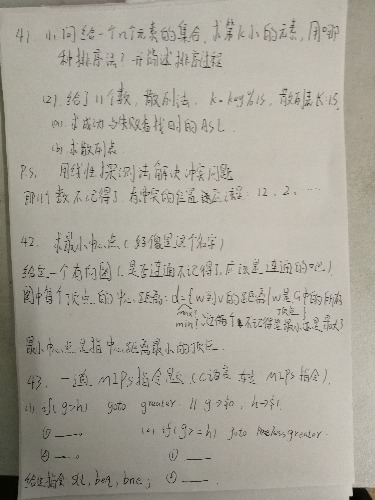 41. 小问给一个n个元素的集合, 求第K小的元素, 用哪
种排序法? 并简述排序过程
(2). 给了11个数, 散列法, K = key%15, 散列表K:15,
(a). 求成功与失败查找时的ASL.
(b). 求散列点.
P.S. 用线性探测法解决冲突问题
那11个数不记得了, 有冲突的位置 12, 2, ...
42. 求最小中心点(好像是这个名字)
给定一个有向图(是否连通不记得了, 应该是连通的吧)
图中每个顶点的中心距离: d={w到v的距离|w是G中的所有
顶点}
max?
min? 这两个不记得是最小还是最大了
最小中心点是指中心距离最小的顶点.
43. 一道MIPS指令题 (C语言 MIPS指令).
(1) if(g>h) goto greater. // g→$0, h→$1.
① ——. (2) if(g>=h) goto greater.
② ——. ① ——.
给定指令slt, beq, bne;